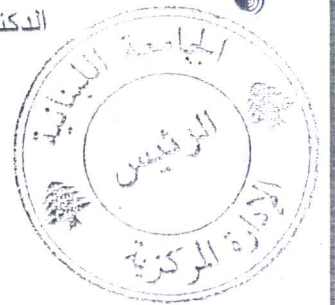 الدكت
الجامعة اللبنانية
الرئيس
الادارة المركزية